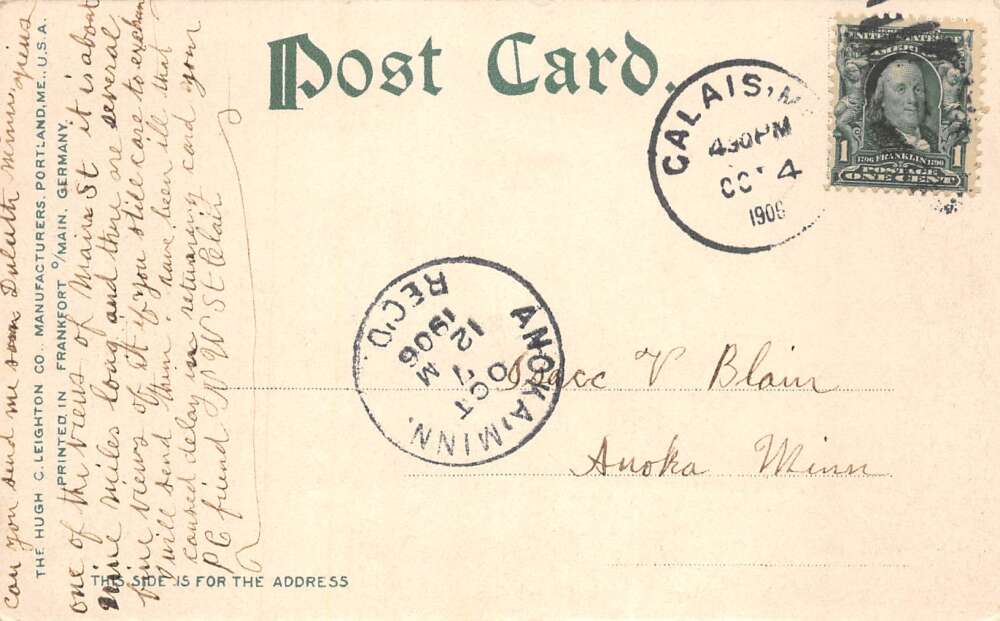 Post Card.
CALAIS, M
430 PM
OCT 4
1906
UNITED STATES OF
AMERI
1796 FRANKLIN 1790
1 POSTAGE 1
ONE CENT
ANOKA, MINN.
OCT 7
M
12
1906
REC'D.
Isacc V Blair
Anoka Minn
THIS SIDE IS FOR THE ADDRESS
THE HUGH C. LEIGHTON CO. MANUFACTURERS, PORTLAND, ME., U.S.A.
PRINTED IN FRANKFORT O/MAIN, GERMANY.
can you send me some Duluth Minn, views
one of the views of Main St it is about
nine miles long and there are several
fine views of it if you still care to exchan
I will send them i have been ill that
caused delay in returning card your
PC friend W W St Clair